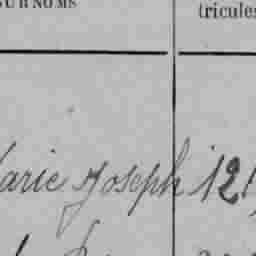 URNOMS tricules
arie Joseph 121